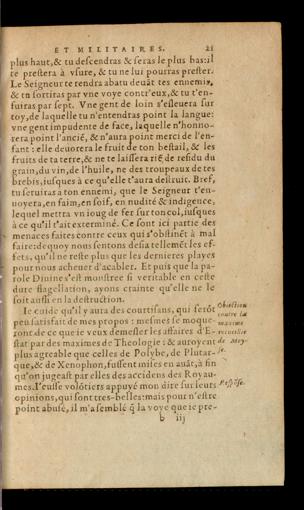 ET MILITAIRES. 21
plus haut,& tu descendras & seras le plus bas:il
te prestera à vsure, & tu ne lui pourras prester.
Le Seigneur te rendra abatu deuāt tes ennemis,
& tu sortiras par vne voye contr'eux,& tu t'en-
fuiras par sept. Vne gent de loin s'esleuera sur
toy,de laquelle tu n'entendras point la langue:
vne gent impudente de face, laquelle n'honno-
rera point l'anciē, & n'aura point merci de l'en-
fant : elle deuorera le fruit de ton bestail, & les
fruits de ta terre,& ne te laissera riē de residu du
grain,du vin,de l'huile, ne des troupeaux de tes
brebis,iusques à ce qu'elle t'aura destruit. Bref,
tu seruiras à ton ennemi, que le Seigneur t'en-
uoyera,en faim,en soif, en nudité & indigence,
lequel mettra vn ioug de fer sur ton col,iusques
à ce qu'il t'ait exterminé. Ce sont ici partie des
menaces faites contre ceux qui s'obstinēt à mal
faire:dequoy nous sentons desia tellemēt les ef-
fets, qu'il ne reste plus que les dernieres playes
pour nous acheuer d'acabler. Et puis que la pa-
role Diuine s'est monstree si veritable en ceste
dure flagellation, ayons crainte qu'elle ne le
soit aussi en la destruction.
Ie cuide qu'il y aura des courtisans, qui serōt
peu satisfait de mes propos : mesmes se moque-
ront de ce que ie veux demesler les affaires d'E-
stat par des maximes de Theologie : & auroyent
plus agreable que celles de Polybe, de Plutar-
que,& de Xenophon,fussent mises en auāt,à fin
qu'on iugeast par elles des accidens des Royau-
mes. I'eusse volōtiers appuyé mon dire sur leurs
opinions,qui sont tres-belles:mais pour n'estre
point abusé, il m'a semblé q̄ la voye que ie pre-
b iij
Obiection
contre la
maxime
recueillie
de Moy-
se.
Respōse.